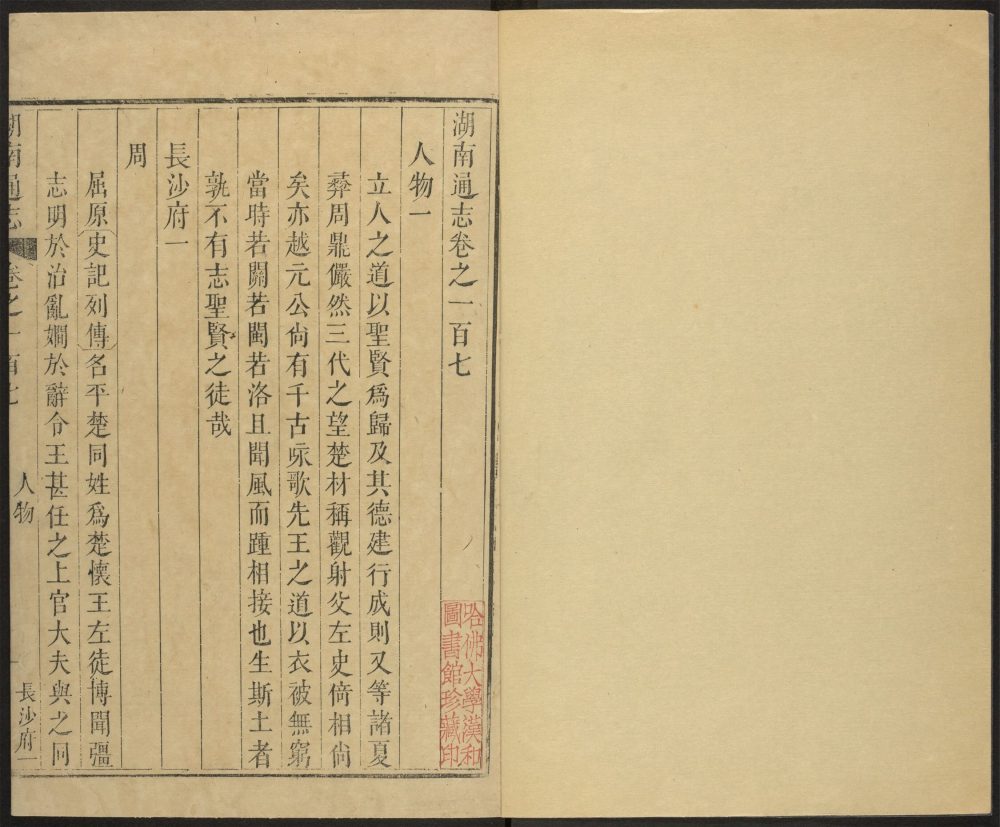 湖南通志卷之一百七
人物一
立人之道以聖賢爲歸及其德建行成則又等諸夏
彝周鼎儼然三代之望楚材稱觀射父左史倚相尙
矣亦越元公尙有千古咏歌先王之道以衣被無窮
當時若關若閩若洛且聞風而踵相接也生斯土者
孰不有志聖賢之徒哉
長沙府一
周
屈原史記列傳名平楚同姓爲楚懷王左徒博聞彊
志明於治亂嫺於辭令王甚任之上官大夫與之同
湖南通志 卷之一百七 人物 一 長沙府一
哈佛大學漢和
圖書館珍藏印